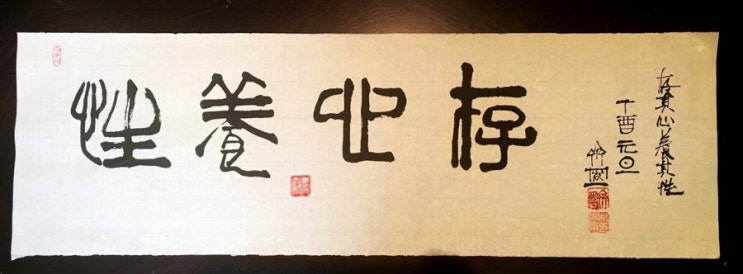 存心養性
存其心養其性
丁酉元旦